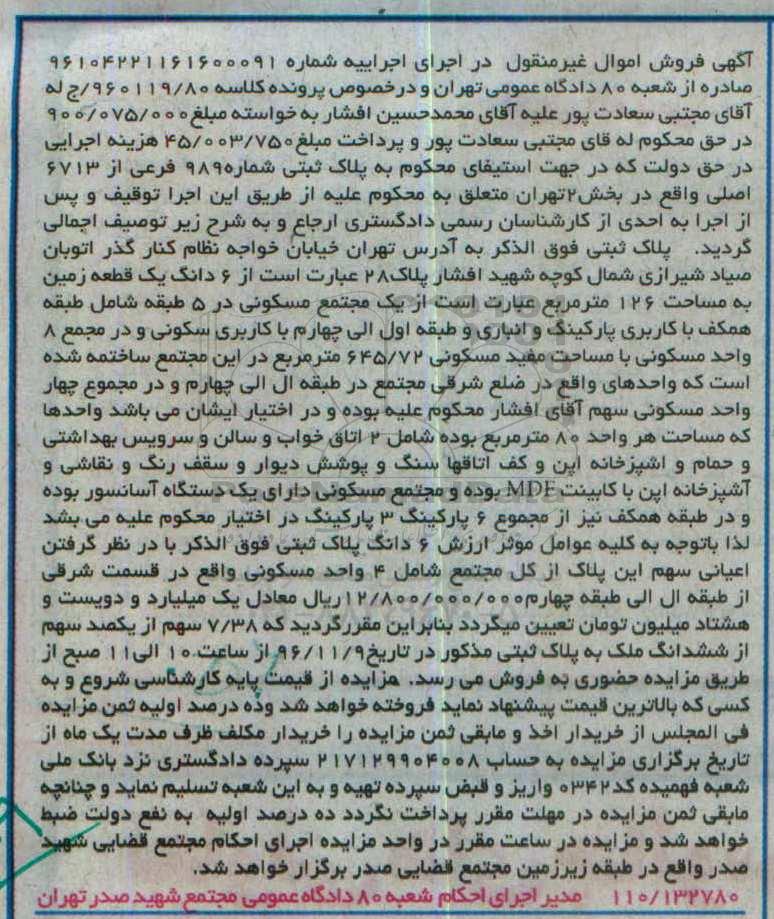 آگهی فروش اموال غیرمنقول در اجرای اجراییه شماره ۹۶۱۰۴۲۲۱۱۶۱۶۰۰۰۹۱
صادره از شعبه ۸۰ دادگاه عمومی تهران و درخصوص پرونده کلاسه ۹۶۰۱۱۹/۸۰/ج له
آقای مجتبی سعادت پور علیه آقای محمدحسین افشار به خواسته مبلغ ۹۰۰/۰۷۵/۰۰۰
در حق محکوم له قای مجتبی سعادت پور و پرداخت مبلغ ۴۵/۰۰۳/۷۵۰ هزینه اجرایی
در حق دولت که در جهت استیفای محکوم به پلاک ثبتی شماره ۹۸۹ فرعی از ۶۷۱۳
اصلی واقع در بخش ۲ تهران متعلق به محکوم علیه از طریق این اجرا توقیف و پس
از اجرا به احدی از کارشناسان رسمی دادگستری ارجاع و به شرح زیر توصیف اجمالی
گردید. پلاک ثبتی فوق الذکر به آدرس تهران خیابان خواجه نظام کنار گذر اتوبان
صیاد شیرازی شمال کوچه شهید افشار پلاک ۲۸ عبارت است از ۶ دانگ یک قطعه زمین
به مساحت ۱۲۶ مترمربع عبارت است از یک مجتمع مسکونی در ۵ طبقه شامل طبقه
همکف با کاربری پارکینگ و انباری و طبقه اول الی چهارم با کاربری سکونی و در مجمع ۸
واحد مسکونی با مساحت مفید مسکونی ۶۴۵/۷۲ مترمربع در این مجتمع ساختمه شده
است که واحدهای واقع در ضلع شرقی مجتمع در طبقه ال الی چهارم و در مجموع چهار
واحد مسکونی سهم آقای افشار محکوم علیه بوده و در اختیار ایشان می باشد واحدها
که مساحت هر واحد ۸۰ مترمربع بوده شامل ۲ اتاق خواب و سالن و سرویس بهداشتی
و حمام و اشپزخانه اپن و کف اتاقها سنگ و پوشش دیوار و سقف رنگ و نقاشی و
آشپزخانه اپن با کابینت MDF بوده و مجتمع مسکونی دارای یک دستگاه آسانسور بوده
و در طبقه همکف نیز از مجموع ۶ پارکینگ ۳ پارکینگ در اختیار محکوم علیه می بشد
لذا باتوجه به کلیه عوامل موثر ارزش ۶ دانگ پلاک ثبتی فوق الذکر با در نظر گرفتن
اعیانی سهم این پلاک از کل مجتمع شامل ۴ واحد مسکونی واقع در قسمت شرقی
از طبقه ال الی طبقه چهارم ۱۲/۸۰۰/۰۰۰/۰۰۰ ریال معادل یک میلیارد و دویست و
هشتاد میلیون تومان تعیین میگردد بنابراین مقررگردید که ۷/۳۸ سهم از یکصد سهم
از ششدانگ ملک به پلاک ثبتی مذکور در تاریخ ۹۶/۱۱/۹ از ساعت ۱۰ الی ۱۱ صبح از
طریق مزایده حضوری به فروش می رسد. مزایده از قیمت پایه کارشناسی شروع و به
کسی که بالاترین قیمت پیشنهاد نماید فروخته خواهد شد وده درصد اولیه ثمن مزایده
فی المجلس از خریدار اخذ و مابقی ثمن مزایده را خریدار مکلف ظرف مدت یک ماه از
تاریخ برگزاری مزایده به حساب ۲۱۷۱۲۹۹۰۴۰۰۸ سپرده دادگستری نزد بانک ملی
شعبه فهمیده کد ۰۳۴۲ واریز و قبض سپرده تهیه و به این شعبه تسلیم نماید و چنانچه
مابقی ثمن مزایده در مهلت مقرر پرداخت نگردد ده درصد اولیه به نفع دولت ضبط
خواهد شد و مزایده در ساعت مقرر در واحد مزایده اجرای احکام مجتمع قضایی شهید
صدر واقع در طبقه زیرزمین مجتمع قضایی صدر برگزار خواهد شد.
۱۱۰/۱۳۲۷۸۰ مدیر اجرای احکام شعبه ۸۰ دادگاه عمومی مجتمع شهید صدر تهران